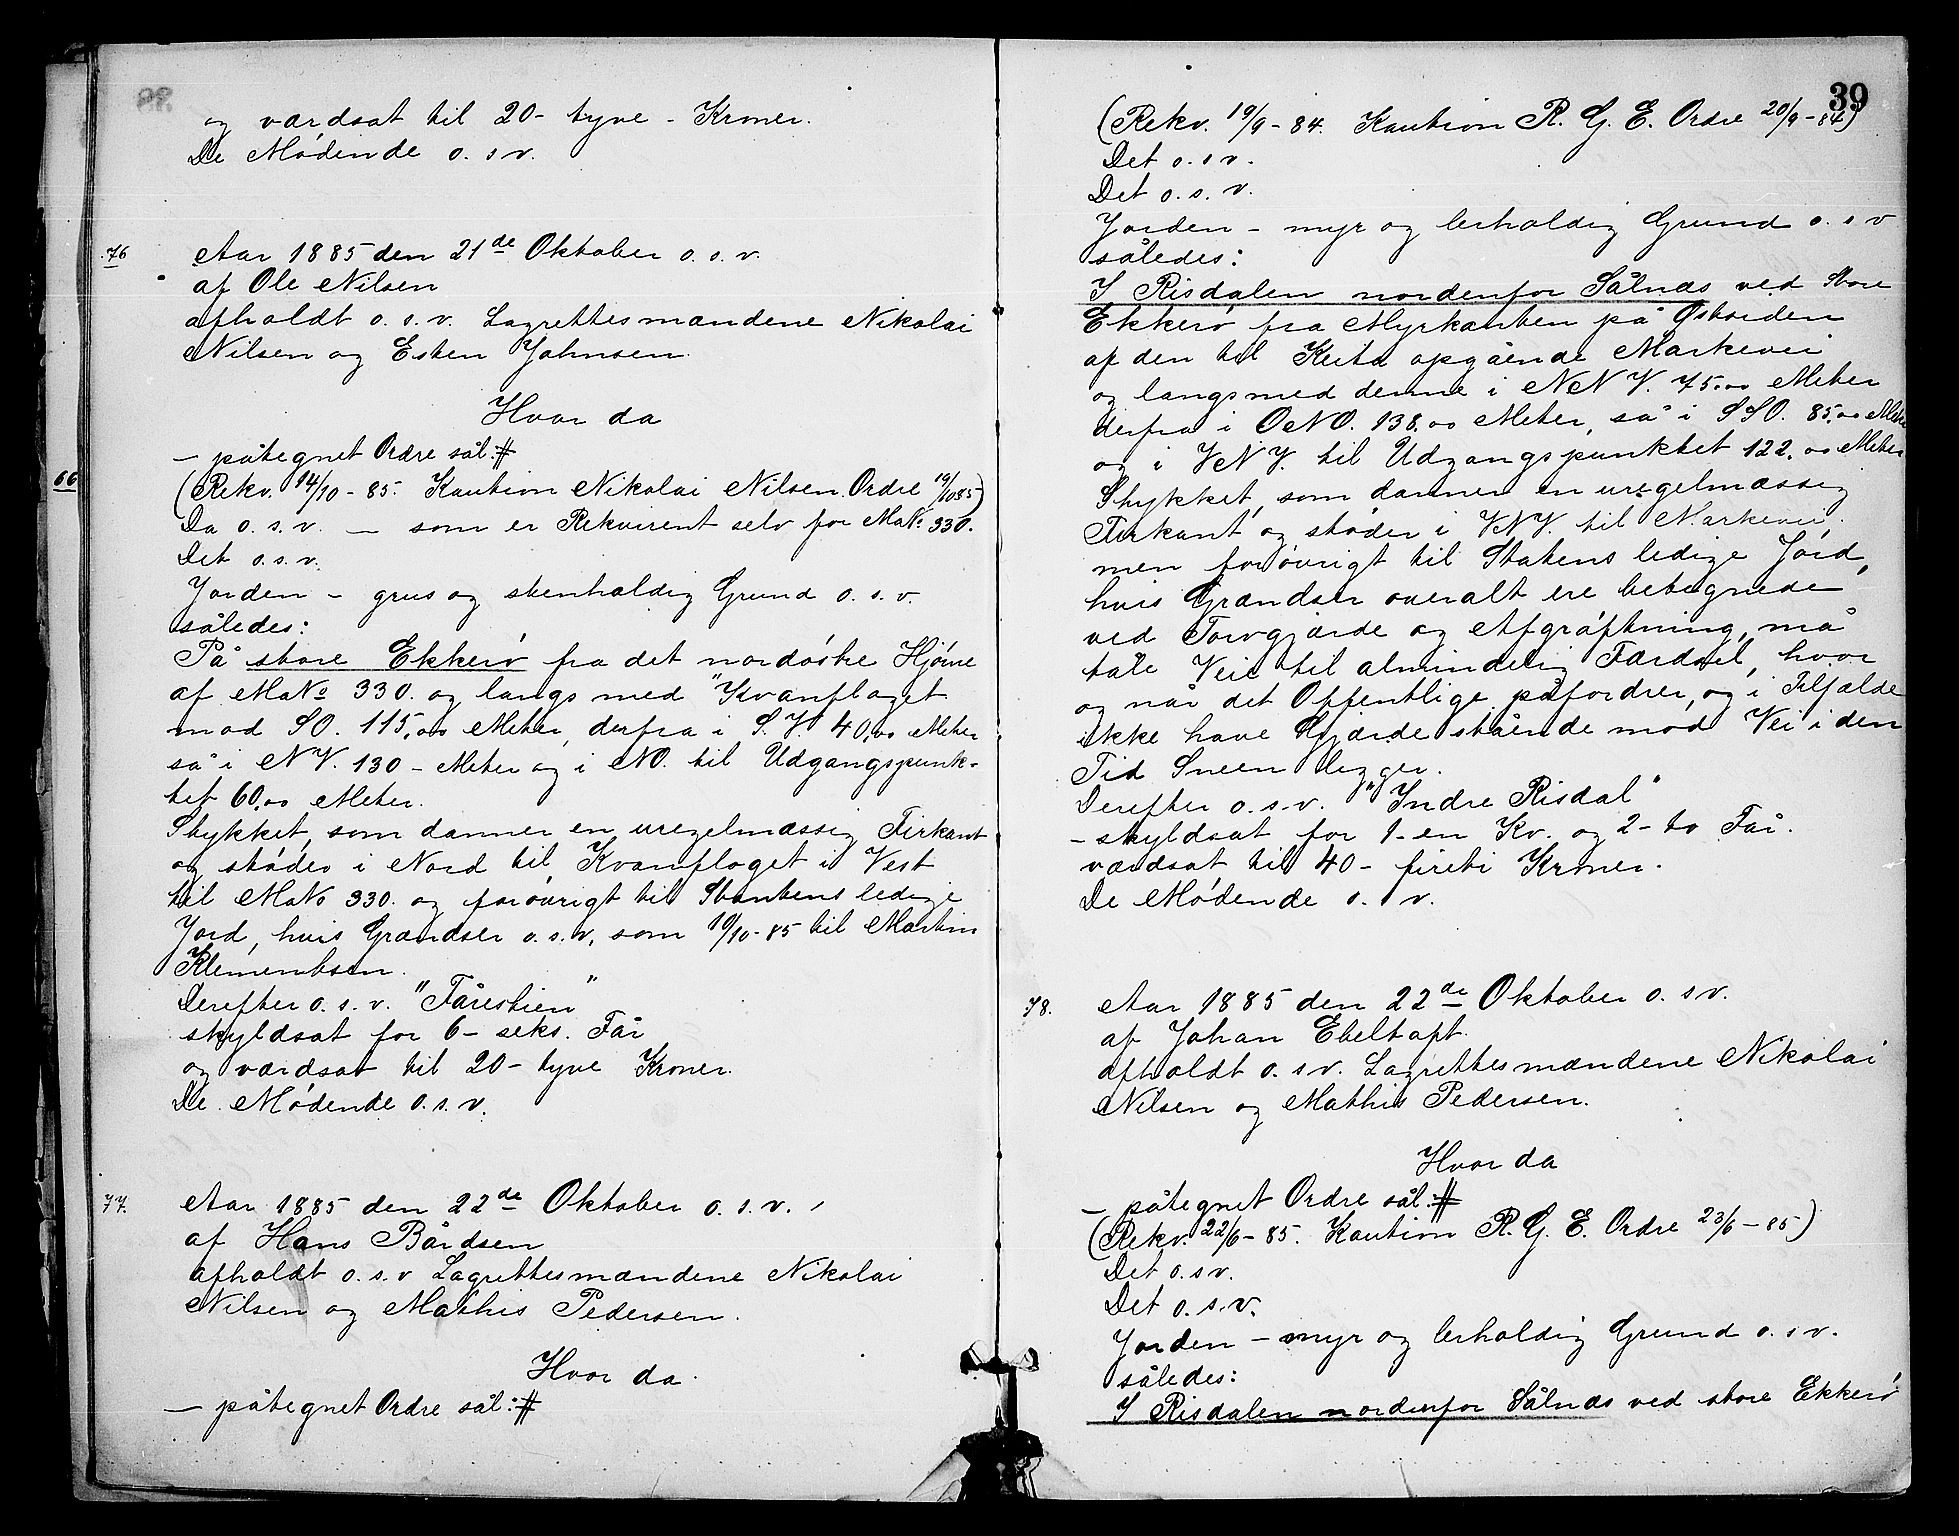 og værdsat til 20 - tyve - Kroner.
De Mødende o. s v.
76 Aar 1885 den 21de Oktober o. s. v.
af Ole Nilsen
afholdt o. s. v. Lagrettesmændene Nikolai
Nilsen og Esten Johnsen.
Hvor da
— påtegnet Ordre sål. #
66 (Rekv. 14/10 - 85. Kaution Nikolai Nilsen. Ordre 19/10 85)
Da o. s. v. — som er Rekvirent selv for MaNo. 330.
Det o. s. v.
Jorden - grus og stenholdig Grund o. s. v.
således:
På store Ekkerö fra det nordöstre Hjörne
af MaNo 330. og langs med "Kvanfloget
mod SO. 115,00 Meter, derfra i S. V. 40,00 Meter
så i NV. 130 - Meter og i NO. til Udgangspunk-
tet 60,00 Meter.
Stykket, som danner en uregelmæssig Firkant
og stöder i Nord til Kvanfloget i Vest
til MaNo 330. og forövrigt til Statens ledige
Jord, hvis Grændser o. s. v. som 19/10 - 85 til Martin
Klementsen.
Derefter o. s. v. "Fårestien"
skyldsat for 6 - seks. Får
og værdsat til 20 - tyve Kroner.
De Mødende o. s. v.
77. Aar 1885 den 22de Oktober o. s. v.
af Hans Bårdsen
afholdt o. s. v Lagrettesmændene Nikolai
Nilsen og Mathis Pedersen.
Hvor da.
— påtegnet Ordre sål: #
39
(Rekv. 19/9 - 84. Kaution R. G. E. Ordre 20/9 - 84)
Det o. s v.
Det o. s. v.
Jorden - myr og lerholdig Grund o. s v
således:
I Risdalen nordenfor Sålnæs ved Store
Ekkerö fra Myrkanten på Östsiden
af den til Keita opgående Markevei
og langsmed denne i NNV. 75.00 Meter
derfra i ONO. 138.00 Meter, så i SSO. 85.00 Meter
og i VNV. til Udgangspunktet 122.00 Meter.
Stykket, som danner en uregelmæssig
Firkant og stöder i VNV. til Markevei.
men forövrigt til Statens ledige Jord,
hvis Grændser overalt ere betegnede
ved Torvgjærde og Afgröftning, må
tåle Veie til almindelig Færdsel, hvor
og når det Offentlige påfordrer, og i Tilfælde
ikke have Gjærde stående mod Vei i den
Tid Sneen ligger.
Derefter o. s. v. "Indre Risdal"
- skyldsat for 1 - en Kv. og 2 - to Får.
værdsat til 40 - fireti Kroner.
De Mødende o. s v.
78. Aar 1885 den 22de Oktober o. s v.
af Johan Ebeltoft.
afholdt o. s v. Lagrettesmændene Nikolai
Nilsen og Mathis Pedersen.
Hvor da
— påtegnet Ordre sål. #
(Rekv. 22/6 - 85. Kaution R. G. E. Ordre 23/6 - 85)
Det o. s v.
Det o. s. v.
Jorden - myr og lerholdig Grund o. s v.
således:
I Risdalen nordenfor Sålnæs ved store Ekkerö